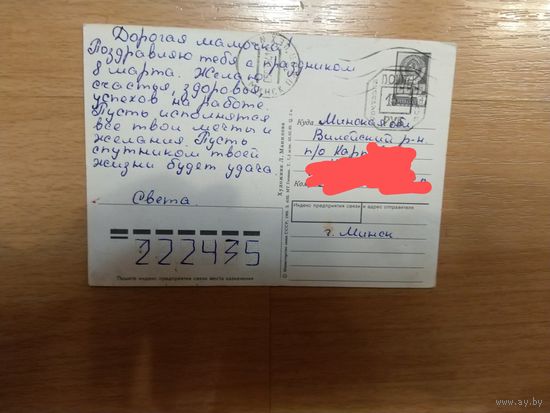 Дорогая мамочка
Поздравляю тебя с праздником
8 марта. Желаю
счастья, здоровья,
успехов на работе.
Пусть исполнятся
все твои мечты и
желания. Пусть
спутником твоей
жизни будет удача.
Света
222435
Пишите индекс предприятия связи места назначения
Художник Л. Манилова
МИНСК
Куда Минская обл.
Вилейский р-н
п/о
Индекс предприятия связи и адрес отправителя
г. Минск
www.ay.by